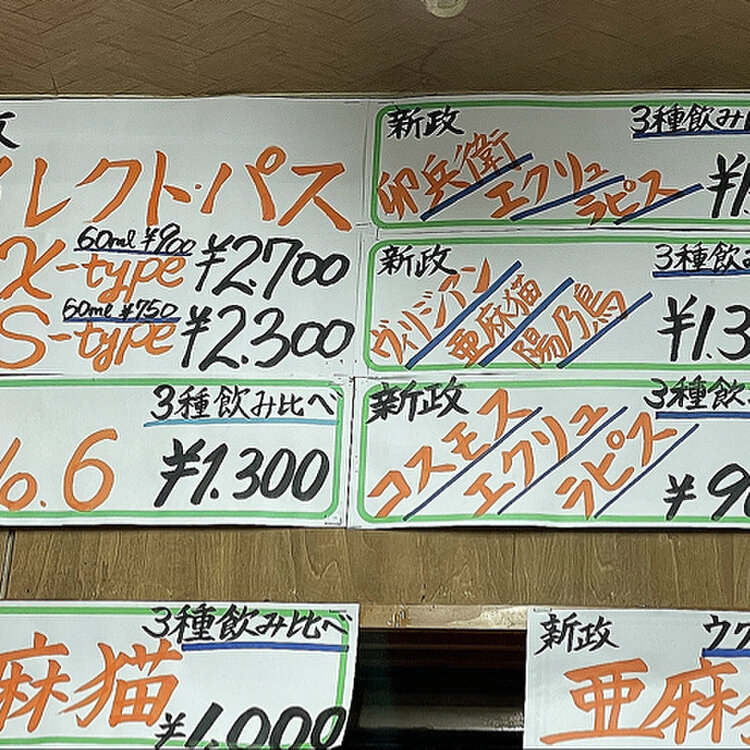 レクト・パス
X-type 60ml ¥900 ¥2.700
S-type 60ml ¥750 ¥2.300
3種飲み比べ
o.6 ¥1.300
新政 3種飲み
卵兵衛 エクリュ ラピス ¥1
新政 3種飲み
ヴィリジアン 亜麻猫 陽乃鳥 ¥1.3
新政 3種飲み
コスモス エクリュ ラピス ¥9
3種飲み比べ
麻猫 ¥1.000
新政
亜麻